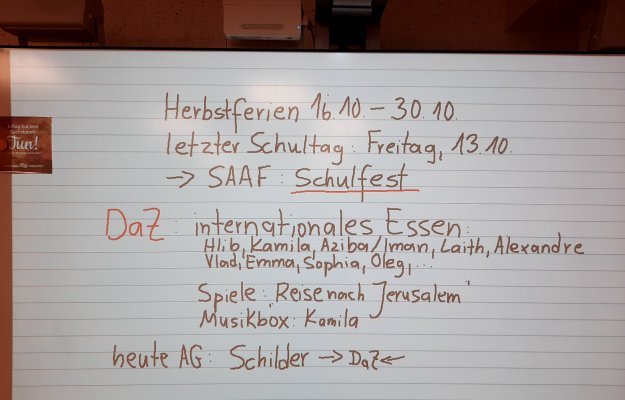 Erfolg hat drei
Buchstaben:
Tun!
Herbstferien 16.10. – 30.10.
letzter Schultag: Freitag, 13.10.
→ SAAF: Schulfest
DaZ: internationales Essen:
Hlib, Kamila, Aziba/Iman, Laith, Alexandre
Vlad, Emma, Sophia, Oleg, ...
Spiele: "Reise nach Jerusalem"
Musikbox: Kamila
heute AG: Schilder → DaZ ←